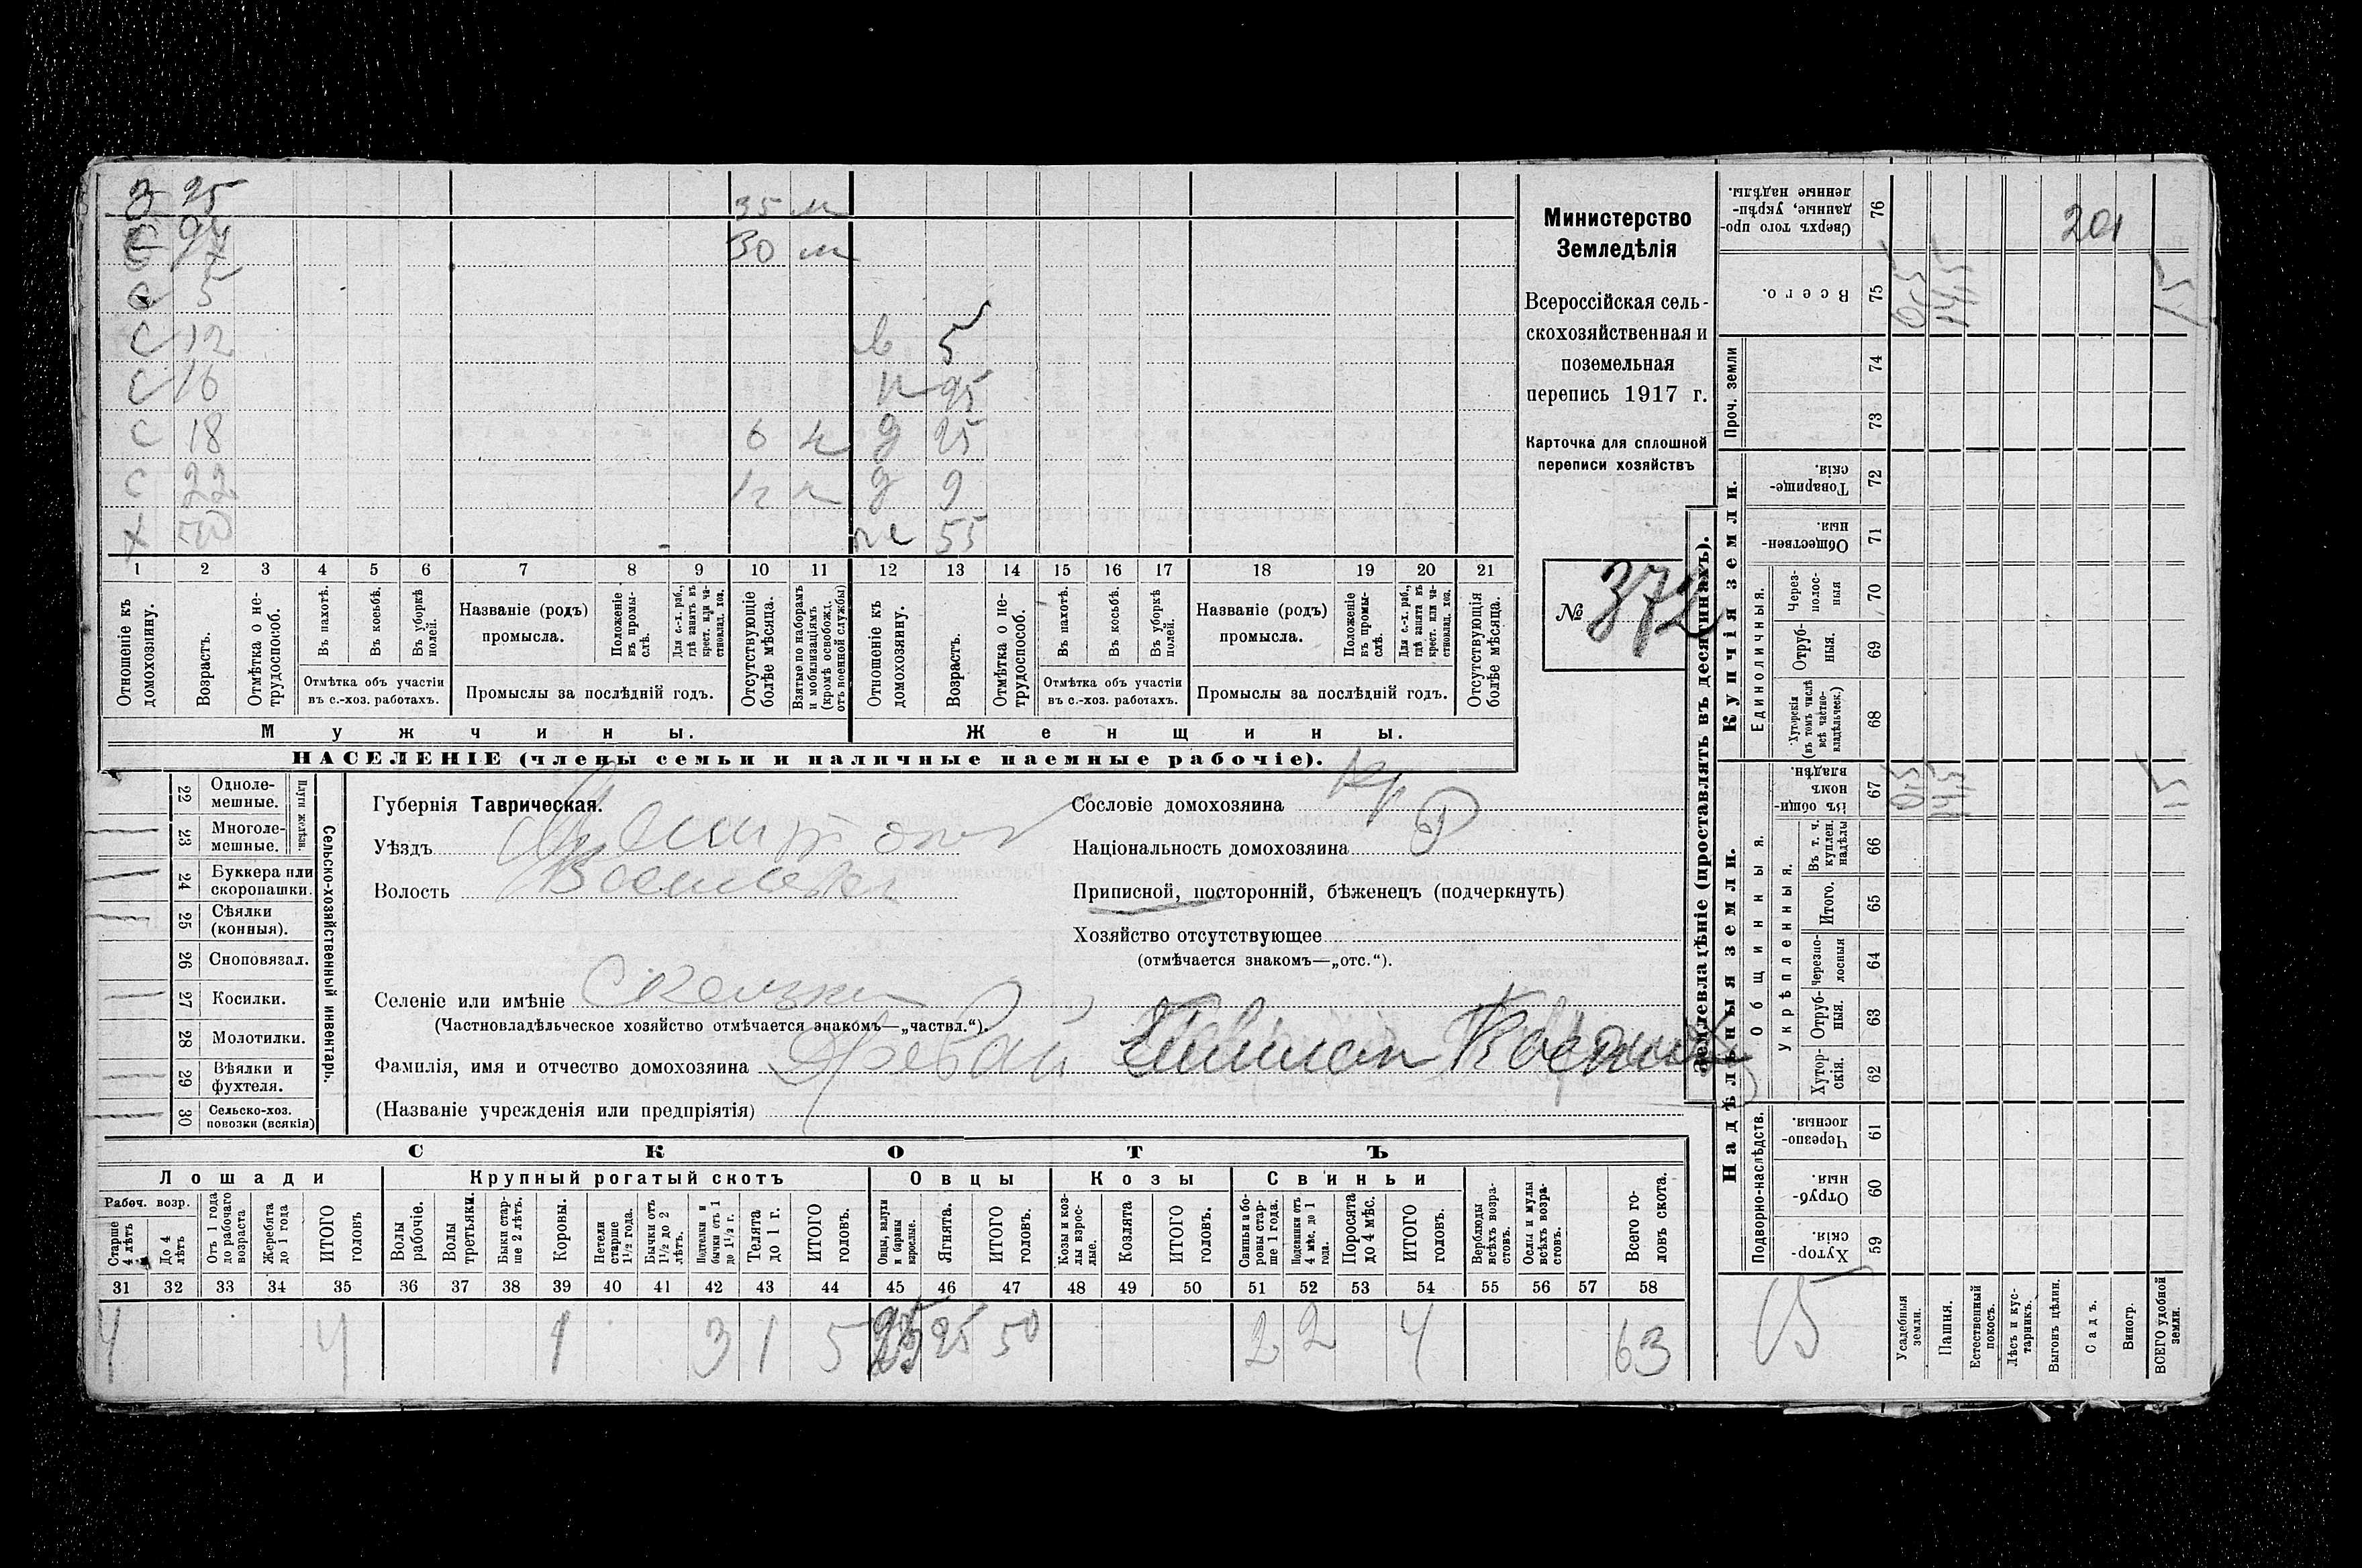 З 25 35 м
30 м
С 5
С 12 5
С 16 95
С 18 6 Д 25
С 22 12 Д 9
Х 55
1 2 3 4 5 6 7 8 9 10 11 12 13 14 15 16 17 18 19 20 21
Отношеніе къ домохозяину.
Возрастъ.
Отмѣтка о нетрудоспособ.
Въ пахотѣ.
Въ косьбѣ.
Въ уборкѣ полей.
Отмѣтка объ участіи въ с.-хоз. работахъ.
Названіе (родъ) промысла.
Положеніе въ промыслѣ.
Для с.-х. раб., гдѣ занятъ въ крест. или частновлад. хоз.
Промыслы за послѣдній годъ.
Отсутствующіе болѣе мѣсяца.
Взятые по наборамъ и мобилизаціямъ (кромѣ освобожд. отъ военной службы)
Отношеніе къ домохозяину.
Возрастъ.
Отмѣтка о нетрудоспособ.
Въ пахотѣ.
Въ косьбѣ.
Въ уборкѣ полей.
Отмѣтка объ участіи въ с.-хоз. работахъ.
Названіе (родъ) промысла.
Положеніе въ промыслѣ.
Для с.-х. раб., гдѣ занята въ крест. или частновлад. хоз.
Промыслы за послѣдній годъ.
Отсутствующія болѣе мѣсяца.
Мужчины.
Женщины.
НАСЕЛЕНІЕ (члены семьи и наличные наемные рабочіе).
Министерство
Земледѣлія
Всероссійская сель-
скохозяйственная и
поземельная
перепись 1917 г.
Карточка для сплошной
переписи хозяйствъ
№ 372
22 Одноле-мешные.
23 Многоле-мешные.
Плуги желѣзн.
24 Буккера или скоропашки.
25 Сѣялки (конныя).
26 Сноповязал.
27 Косилки.
28 Молотилки.
29 Вѣялки и фухтеля.
30 Сельско-хоз. повозки (всякія)
Сельско-хозяйственный инвентарь.
Губернія Таврическая.
Уѣздъ Мелитопол
Волость
Селеніе или имѣніе Скельки
(Частновладѣльческое хозяйство отмѣчается знакомъ—„частвл.“).
Фамилія, имя и отчество домохозяина
(Названіе учрежденія или предпріятія)
Сословіе домохозяина Кр
Національность домохозяина Р
Приписной, посторонній, бѣженецъ (подчеркнуть)
Хозяйство отсутствующее
(отмѣчается знакомъ—„отс.“).
СКОТЪ
Лошади
Крупный рогатый скотъ
Овцы
Козы
Свиньи
Рабоч. возр.
Старше 4 лѣтъ
До 4 лѣтъ
Отъ 1 года до рабочаго возраста
Жеребята до 1 года
ИТОГО головъ
Волы рабочіе.
Волы третьяки.
Быки старше 2 лѣтъ.
Коровы.
Нетели старше 1½ года.
Бычки отъ 1½ до 2 лѣтъ.
Подтелки и бычки отъ 1 до 1½ г.
Телята до 1 г.
ИТОГО головъ.
Овцы, валухи и бараны взрослые.
Ягнята.
ИТОГО головъ.
Козы и козлы взрослые.
Козлята
ИТОГО головъ.
Свиньи и боровы старше 1 года.
Подсвинки отъ 4 мѣс. до 1 года.
Поросята до 4 мѣс.
ИТОГО головъ.
Верблюды всѣхъ возрастовъ.
Ослы и мулы всѣхъ возрастовъ.
Всего головъ скота.
31 32 33 34 35 36 37 38 39 40 41 42 43 44 45 46 47 48 49 50 51 52 53 54 55 56 57 58
4 4 1 3 1 5 25 50 2 2 4 63
Землевладѣніе (проставлять въ десятинахъ).
Надѣльныя земли.
Купчія земли.
Проч. земли
Подворно-наслѣдств.
Общинныя.
Укрѣпленныя.
Единоличныя.
Сверхъ того проданные, укрѣпленные надѣлы. 76
Всего. 75
74
73
Товарищескія. 72
Общественныя. 71
Черезполосныя 70
Отрубныя. 69
Хуторскія (въ томъ числѣ всѣ частновладѣльческ.) 68
Въ общинномъ владѣн. 67
Въ т. ч. куплен. надѣлы 66
Итого. 65
Черезполосныя 64
Отрубныя. 63
Хуторскія. 62
Черезполосныя. 61
Отрубныя. 60
Хуторскія. 59
Усадебныя земли.
Пашня.
Естественный покосъ.
Лѣсъ и кустарникъ.
Выгонъ цѣлин.
Садъ.
Виногр.
ВСЕГО удобной земли.
201
0,5 14,5 15
0,5 14,5 15